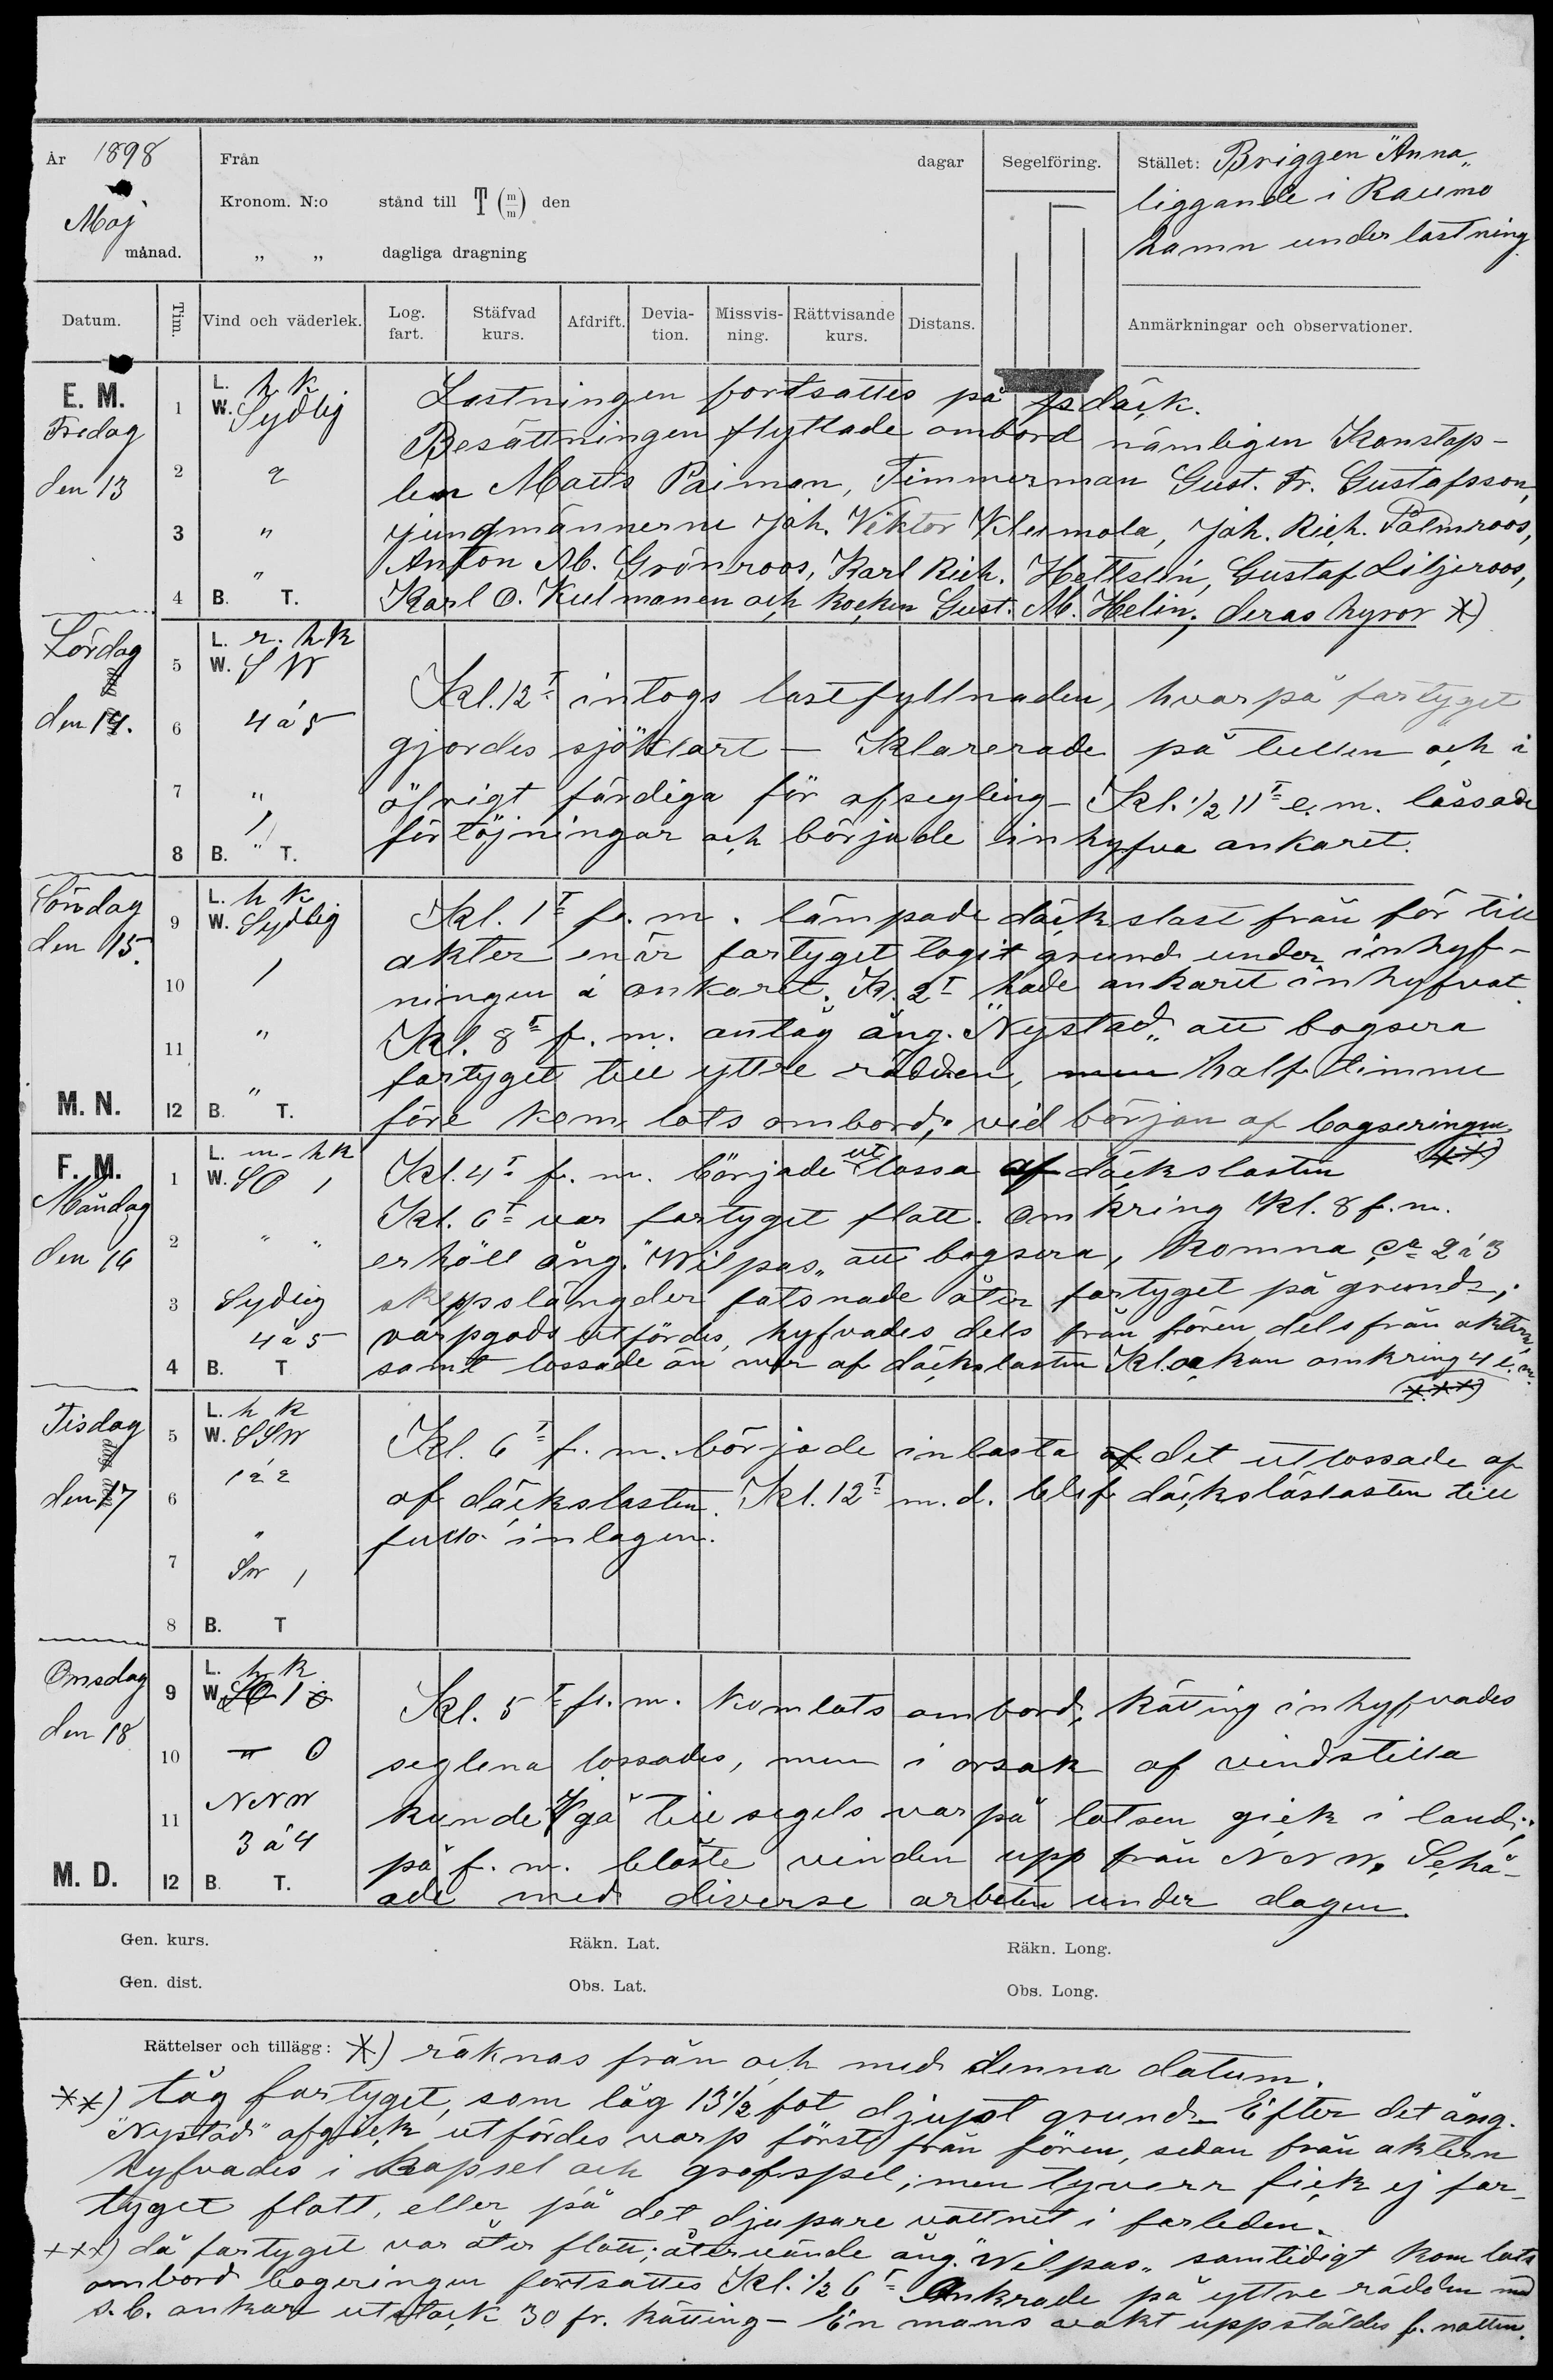 År 1898
Maj
månad.
Från
dagar
Kronom. N:o stånd till T (m/m) den
„ „ dagliga dragning
Segelföring.
Stället: Briggen "Anna„
liggande i Raumo
hamn under lastning.
Datum.
Tim.
Vind och väderlek.
Log. fart.
Stäfvad kurs.
Afdrift.
Deviation.
Missvisning.
Rättvisande kurs.
Distans.
Anmärkningar och observationer.
E. M.
Fredag
den 13
1 L. h k
W. Sydlig
2 2
3 "
"
4 B. T.
Lastningen fortsattes på däck.
Besättningen flyttade ombord nämligen Konstap-
len Matts Paiman, Timmerman Gust. Fr. Gustafsson,
jungmännerne Joh. Viktor Klemola, Joh. Rich. Palmroos,
Anton M. Grönroos, Karl Rich. Hellstén, Gustaf Liljeroos,
Karl O. Kulmanen och kocken Gust. M. Helin; deras hyror *)
Lördag
den 14.
L. r. h k
5 W. SW
6 4 á 5
7 "
1
8 B. " T.
Kl. 12 intogs lastfyllnaden, hvarpå fartyget
gjordes sjöklart — Klarerade på tullen och i
öfrigt färdiga för afsegling — Kl. ½ 11 e. m. lossade
förtöjningar och började inhyfva ankaret.
Söndag
den 15.
L. h k
9 W. Sydlig
10 1
11 "
"
M. N.
12 B. T.
Kl. 1 f. m. lämpade däckslast från för till
akter enär fartyget tagit grund under inhyf-
ningen á ankaret. Kl. 2 hade ankaret inhyfvat
Kl. 8 f. m. antog ång. "Nystad„ att bogsera
fartyget till yttre rädden, half timme
före kom lots ombord; vid början af bogseringen
**)
F. M.
Måndag
den 16
L. m - h k
1 W. SO 1
2 " "
3 Sydlig
4 á 5
4 B. T
Kl. 4 f. m. började ut lossa af däckslasten
Kl. 6 var fartyget flott. Omkring Kl. 8 f. m.
erhöll ång. "Wilpas„ att bogsera, komna ca 2 á 3
skeppslängder fatsnade åter fartyget på grund;
varpgods utfördes, hyfvades dels från fören dels från aktern,
samt lossade än mer af däckslasten Klockan omkring 4 e. m.
***)
Tisdag
den 17
L. h k
5 W. SSW
1 á 2
6
"
7 SW 1
8 B. T
Kl. 6 f. m. började inlasta af det utlossade af
af däckslasten. Kl. 12 m. d. blef däckslåslasten till
fullo inlagen.
Onsdag
den 18
L. h k
9 W. SO 1
10 " 0
NNW
11
3 á 4
M. D.
12 B. T.
Kl. 5 f. m. kom lots ombord, kätting inhyfvades
seglena lossades, men i orsak af vindstilla
kunde ej gå till segels varpå lotsen gick i land;
på f. m. blåste vinden upp från NNW. Sehå-
ade med diverse arbeten under dagen.
Gen. kurs.
Räkn. Lat.
Räkn. Long.
Gen. dist.
Obs. Lat.
Obs. Long.
Rättelser och tillägg: *) räknas från och med denna datum.
**) tåg fartyget, som låg 13½ fot djupt grund — Efter det ång.
"Nystad" afgick utfördes varp först från fören, sedan från aktern
hyfvades i kapsel och grofspel; men tyvärr fick ej far-
tyget flott, eller på det djupare vattnet i farleden.
***) då fartyget var åter flott; återvände ång. "Wilpas„ samtidigt kom lots
ombord bogeringen fortsattes Kl. ½ 6 Ankrade på yttre rädden med
s. b. ankare utstack 30 fr. kätting — En mans vakt uppstäldes f. natten.